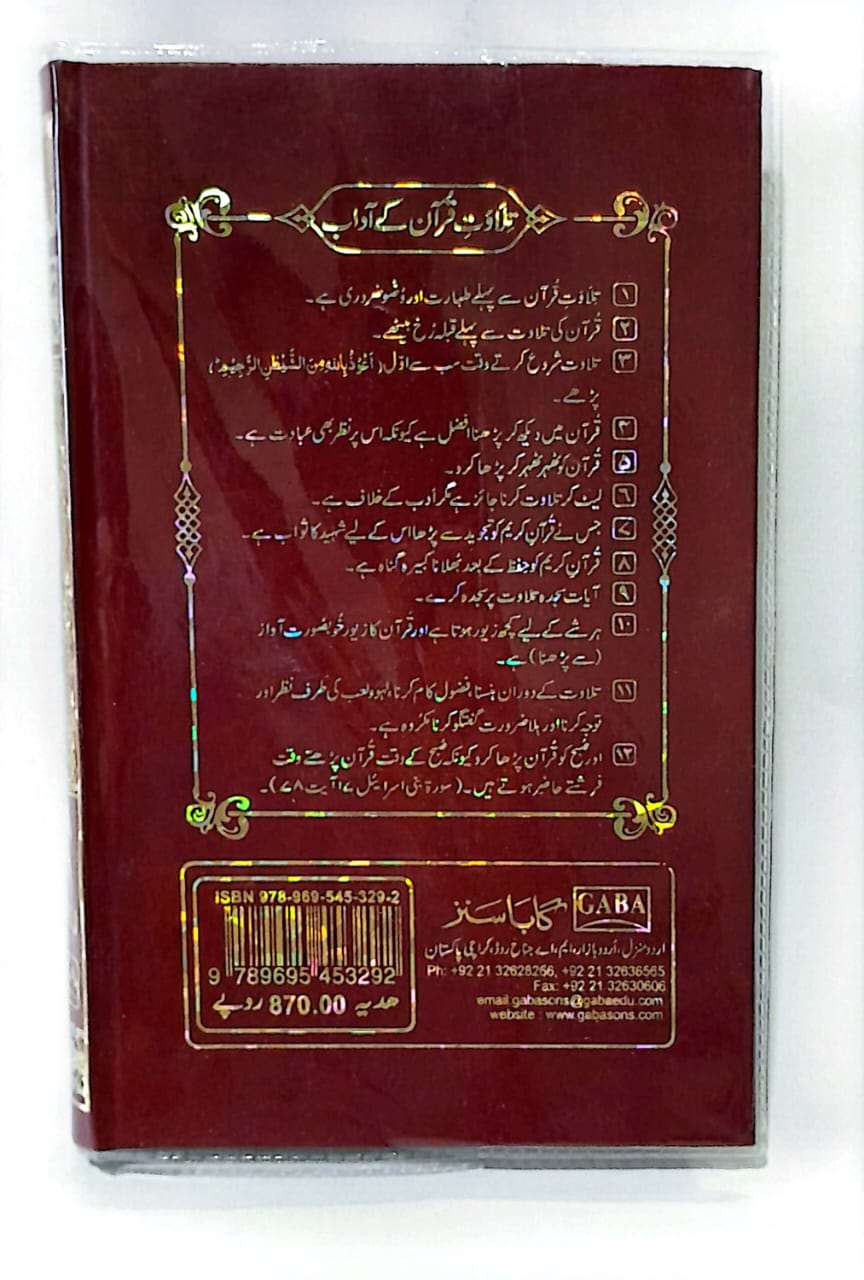 تلاوتِ قُرآن کے آداب
۱ تلاوتِ قُرآن سے پہلے طہارت اور وُضو ضروری ہے۔
۲ قُرآن کی تلاوت سے پہلے قبلہ رُخ بیٹھے۔
۳ تلاوت شروع کرتے وقت سب سے اوّل (اَعُوْذُ بِاللّٰهِ مِنَ الشَّيْطٰنِ الرَّجِيْمِ)
پڑھے۔
۴ قُرآن میں دیکھ کر پڑھنا افضل ہے کیونکہ اس پر نظر بھی عبادت ہے۔
۵ قُرآن کو ٹھہر ٹھہر کر پڑھا کرو۔
۶ لیٹ کر تلاوت کرنا جائز ہے مگر ادب کے خلاف ہے۔
۷ جس نے قُرآنِ کریم کو تجوید سے پڑھا اس کے لیے شہید کا ثواب ہے۔
۸ قُرآنِ کریم کو حفظ کے بعد بُھلانا کبیرہ گناہ ہے۔
۹ آیات سجدہ تلاوت پر سجدہ کرے۔
۱۰ ہر شے کے لیے کچھ زیور ہوتا ہے اور قُرآن کا زیور خُوبصورت آواز
(سے پڑھنا) ہے۔
۱۱ تلاوت کے دوران ہنسنا، فضول کام کرنا، لہو و لعب کی طرف نظر اور
توجہ کرنا اور بلا ضرورت گفتگو کرنا مکروہ ہے۔
۱۲ اور صُبح کو قُرآن پڑھا کرو کیونکہ صُبح کے وقت قُرآن پڑھتے وقت
فرشتے حاضر ہوتے ہیں۔ (سورۃ بنی اسرائیل ۱۷ آیت ۷۸)۔
ISBN 978-969-545-329-2
9 789695 453292
ھدیہ 870.00 روپے
گابا سنز GABA
اردو منزل، اُردو بازار، ایم۔اے جناح روڈ، کراچی پاکستان
Ph: +92 21 32628266, +92 21 32636565
Fax: +92 21 32630606
email:gabasons@gabaedu.com
website : www.gabasons.com